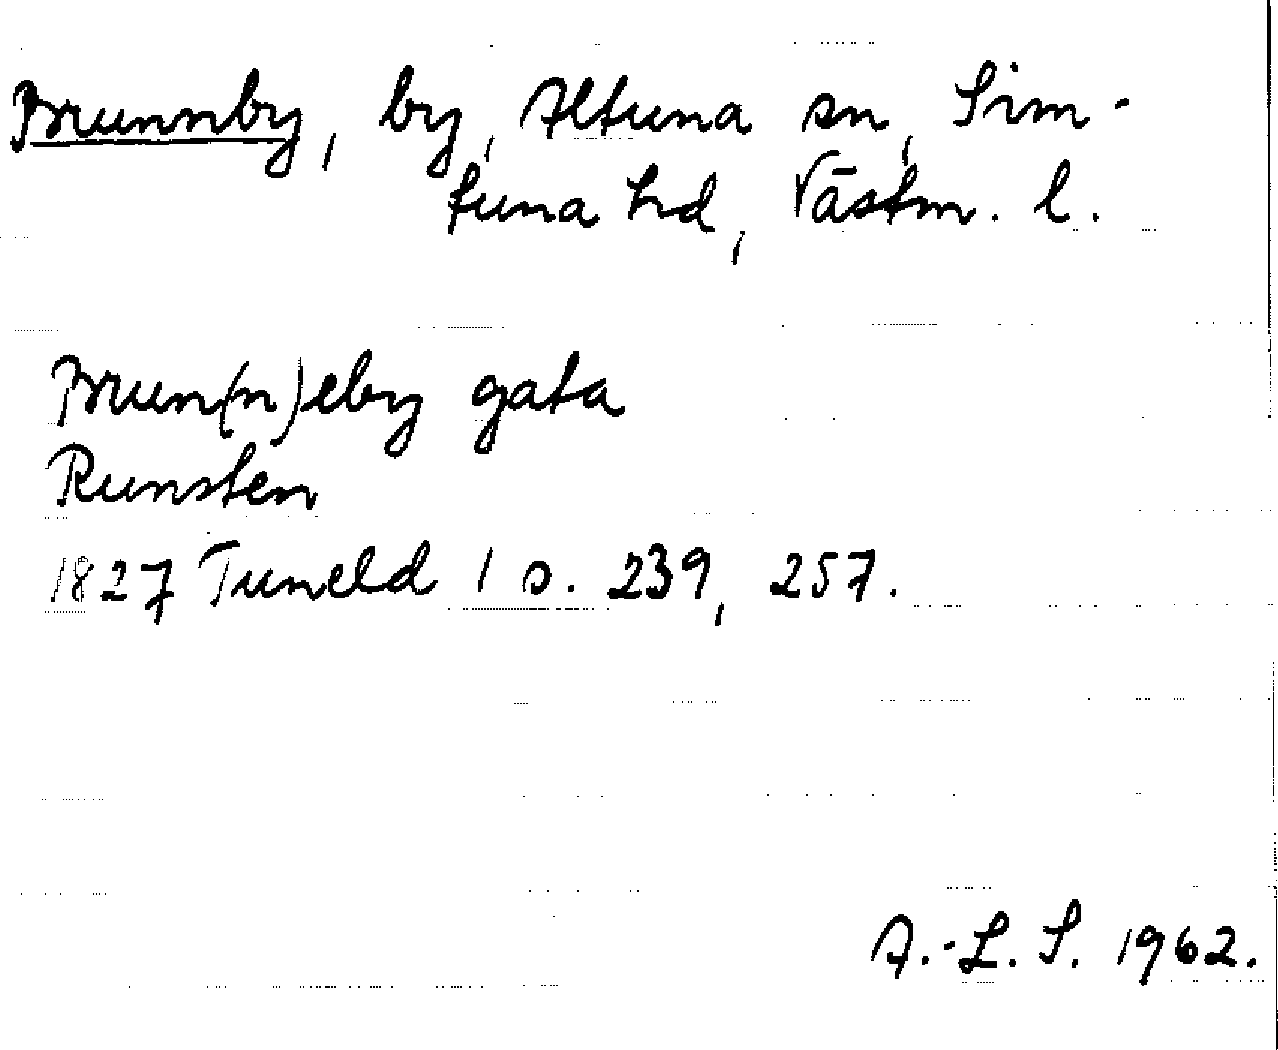 Brunnby, by, Altuna sn, Sim-
tuna hd, Västm. l.
Brun(n)eby gata
Runsten
1827 Tuneld 1 s. 239, 257.
A.-L. S. 1962.